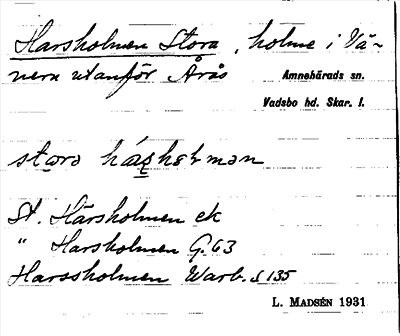 Harsholmen Stora, holme i Vä-
nern utanför Årås
Amnehärads sn.
Vadsbo hd. Skar. l.
stora
St. Harsholmen ek
" Harsholmen G. 63
Harssholmen Warb. s 135
L. MADSÉN 1931